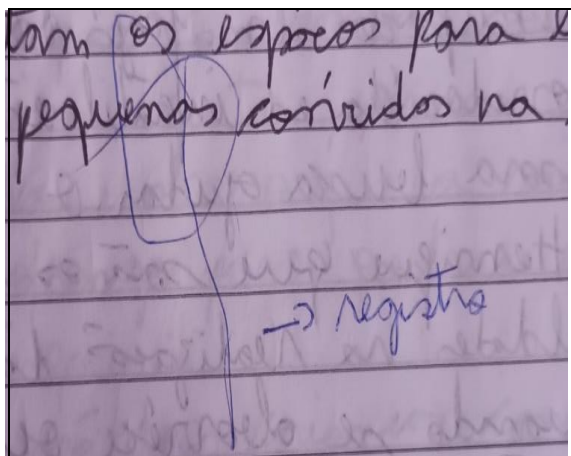 tam os espaços para e
pequenas corridas na
→ registro